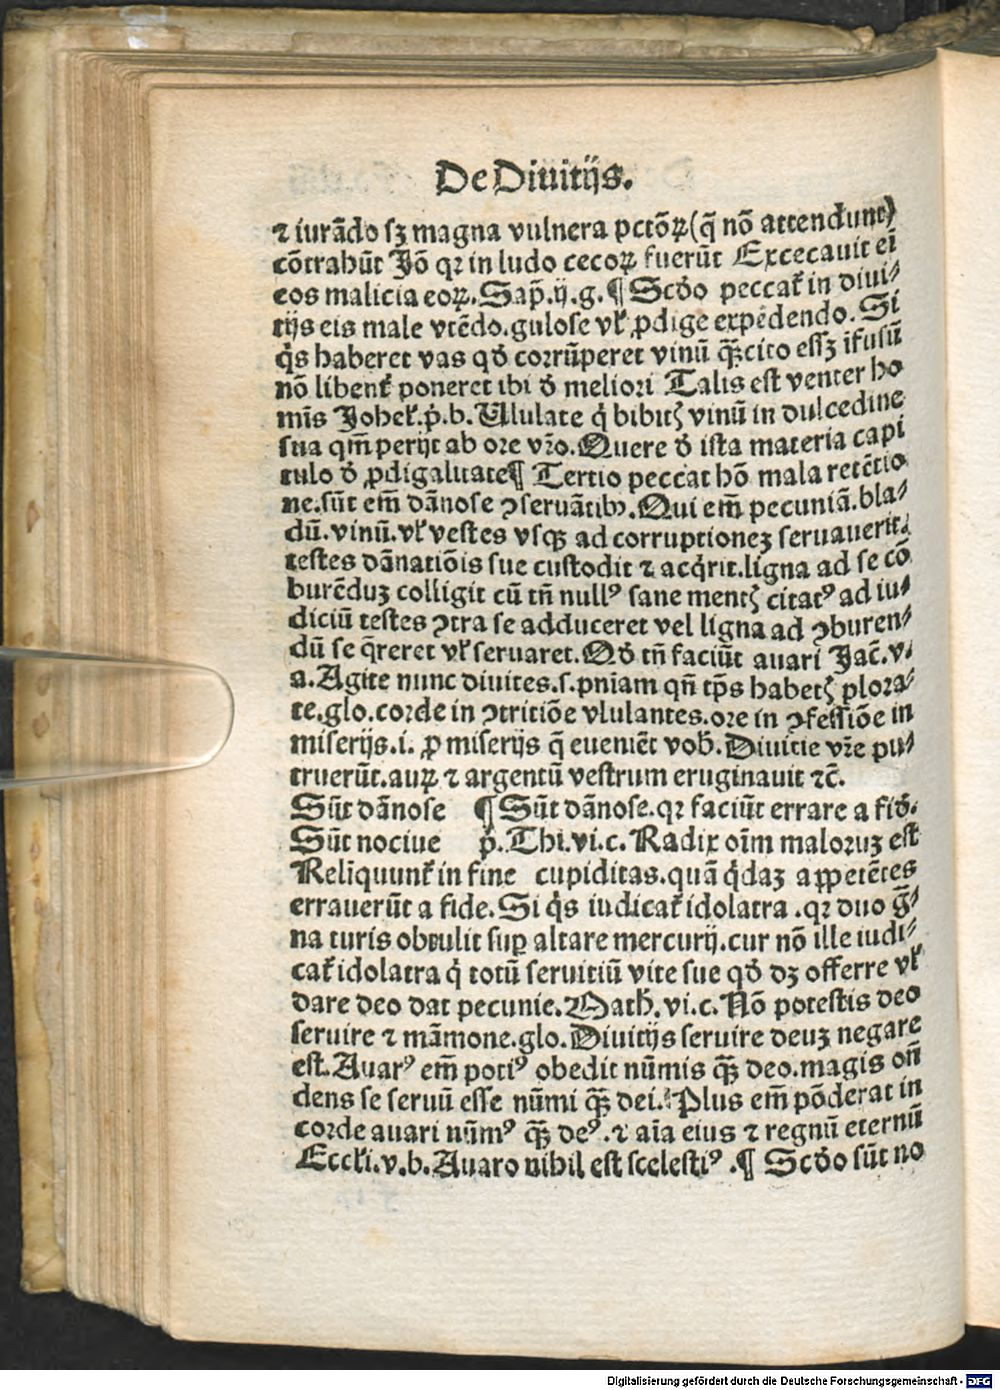 De Diuitijs.
⁊ iurãdo sꝫ magna vulnera pctõꝝ (q̃ nõ attendunt)
cõtrahũt Jõ qꝛ in ludo cecoꝝ fuerũt Excecauit ei̅
eos malicia eoꝝ. Sap̃. ij. g. ¶ Scďo peccat᷑ in diui⸗
tijs eis male vtẽdo. gulose vl̛ ꝓdige expẽdendo. Si
q̇s haberet vas qď corrũperet vinũ q̃ꝫcito essꝫ ifusũ
nõ libent᷑ poneret ibi ď meliori Talis est venter ho
mĩs Johel̛. p̃. b. Ululate q̇ bibitꝭ vinũ in dulcedine
sua qm̃ perijt ab ore vr̃o. Quere ď ista materia capi
tulo ď ꝓdigalitate ¶ Tertio peccat hõ mala retẽtio
ne. sũt em̃ dãnose ꝯseruãtibꝰ. Qui em̃ pecuniã. bla⸗
dũ. vinũ. vl̛ vestes vsqꝫ ad corruptioneꝫ seruauerit.
testes dãnatiõis sue custodit ⁊ acq̇rit. ligna ad se cõ
burẽduꝫ colligit cũ tñ nullꝰ sane mentꝭ citatꝰ ad iu⸗
diciũ testes ꝯtra se adduceret vel ligna ad ꝯburen⸗
dũ se q̃reret vl̛ seruaret. Qď tñ faciũt auari Jac̃. v.
a. Agite nunc diuites. s. pniam qñ tp̃s habetꝭ plora⸗
te. glo. corde in ꝯtritiõe vlulantes. ore in ꝯfessiõe in
miserijs. i. ꝓ miserijs q̃ eueniẽt vob̃. Diuitie vr̃e pu⸗
truerũt. auꝝ ⁊ argentũ vestrum eruginauit ⁊c̃.
Sũt dãnose ¶ Sũt dãnose. qꝛ faciũt errare a fiď.
Sũt nociue p̃. Thi. vi. c. Radix oĩm maloruꝫ est
Reliquunt᷑ in fine cupiditas. quã q̇daꝫ appetẽtes
errauerũt a fide. Si q̇s iudicat᷑ idolatra . qꝛ duo g̃⸗
na turis obtulit suꝑ altare mercurij. cur nõ ille iudi⸗
cat᷑ idolatra q̇ totũ seruitiũ vite sue qď dꝫ offerre vl̛
dare deo dat pecunie. Math̃. vi. c. Nõ potestis deo
seruire ⁊ mãmone. glo. Diuitijs seruire deuꝫ negare
est. Auarꝰ em̃ potiꝰ obedit nũmis q̃ꝫ deo. magis oñ
dens se seruũ esse nũmi q̃ꝫ dei. Plus em̃ põderat in
corde auari nũmꝰ q̃ꝫ deꝰ. ⁊ aĩa eius ⁊ regnũ eternũ
Eccl̛i. v. b. Auaro nihil est scelestiꝰ . ¶ Scďo sũt no
Digitalisierung gefördert durch die Deutsche Forschungsgemeinschaft - DFG